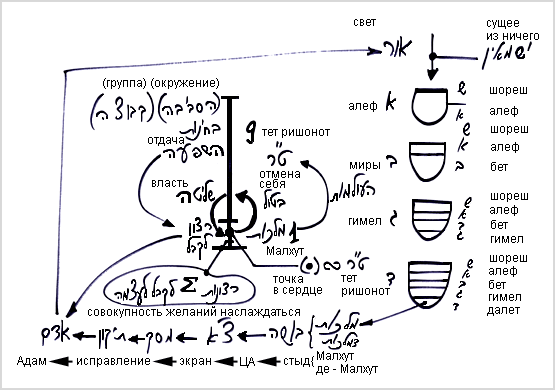 свет
сущее
из ничего
אור
יש מאין
(группа) (окружение)
(הסביבה) (קבוצה)
алеф
א
ש
א
шореш
алеф
отдача
בחינת
השפעה
9
тет ришонот
ט"ר
отмена
себя
ביטול
миры
ב
ש
א
ב
шореш
алеф
бет
власть
שליטה
העולמות
гимел
ג
ש
א
ב
ג
шореш
алеф
бет
гимел
רצון
לקבל
מלכות
1
Малхут
(•) ∞ ט"ר
точка
в сердце
тет
ришонот
ד
ש
א
ב
ג
ד
шореш
алеф
бет
гимел
далет
רצונות Σ לקבל לעצמה
совокупность желаний насладиться
אדם ← תיקון ← מסך ← צ"א ← בושה { מלכות
דמלכות
Адам исправление экран ЦА стыд{ Малхут
де - Малхут